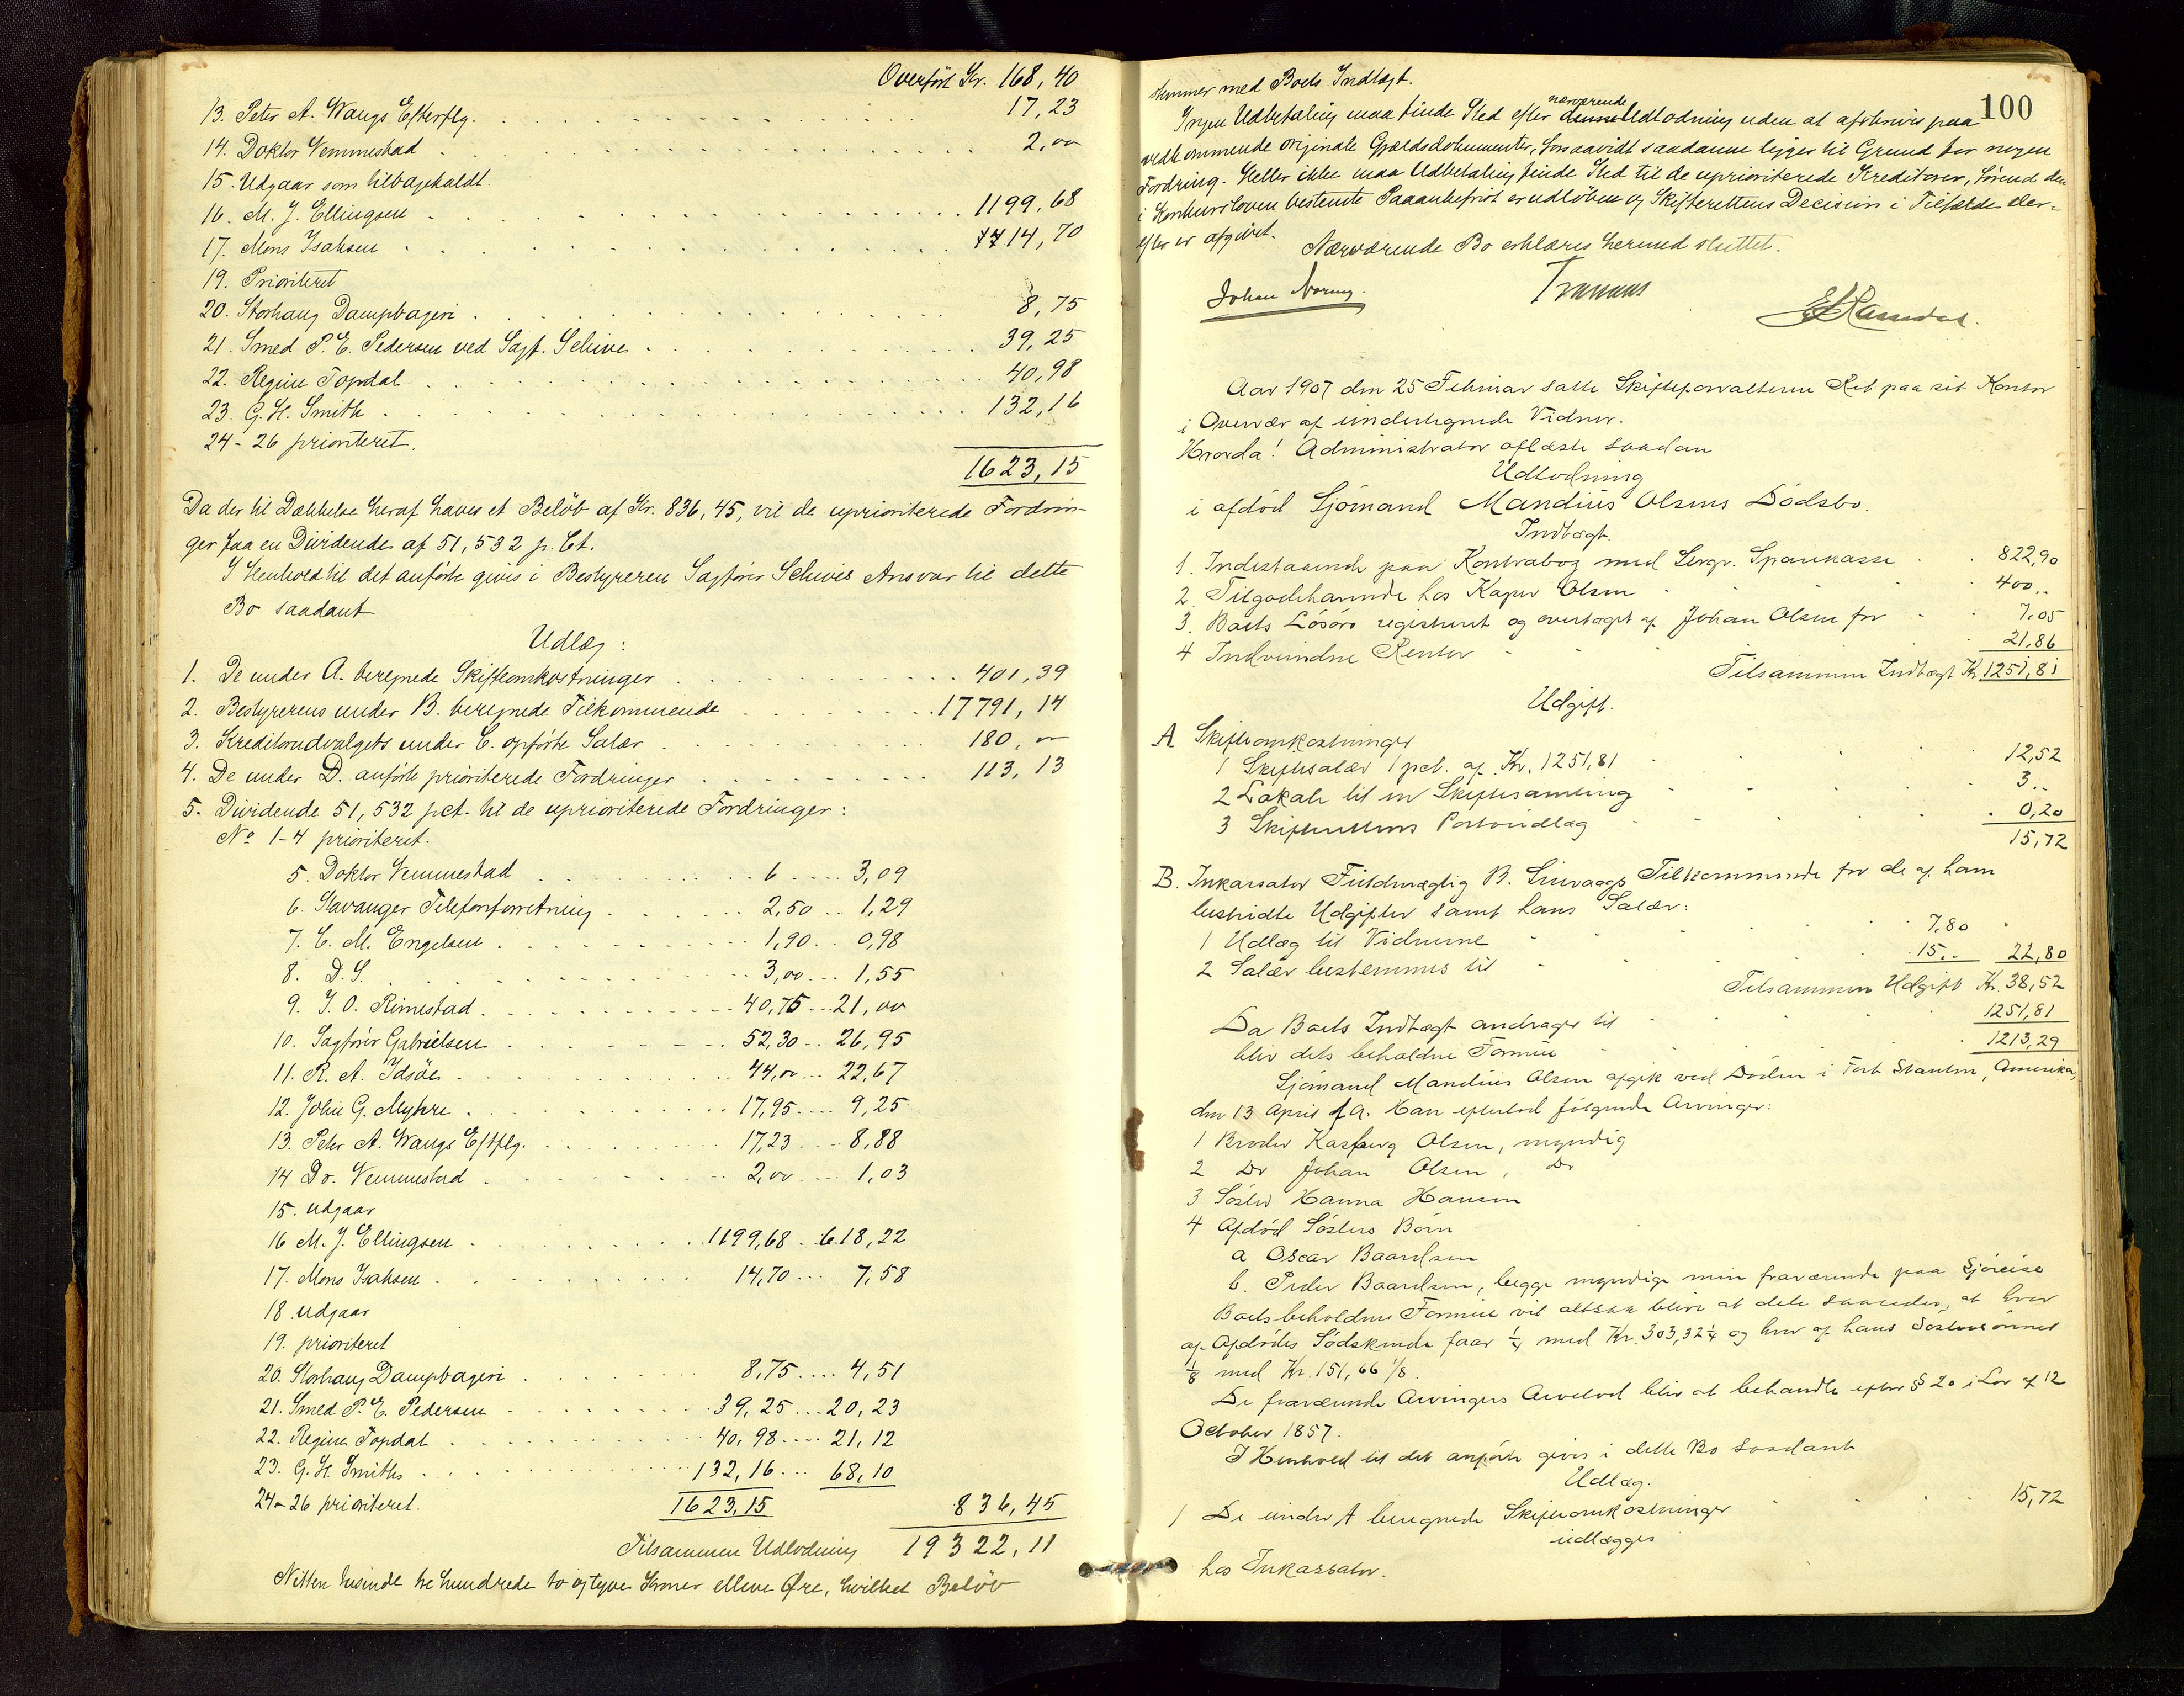 Overført Kr. 168,40
13. Peter A. Waugs Efterflg. 17,23
14. Doktor Vemmestad 2,00
15. Udgaar som tilbagekaldt.
16. M. J. Ellingsen 1199,68
17. Mons Isaksen 14,70
19. Prioriteret
20. Storhaug Dampbageri 8,75
21. Smed P. E. Pedersen ved Sagf. Schive 39,25
22. Regine Topdal 40,98
23. G. H. Smith 132,16
24-26 prioriteret.
1623,15
Da der til Dækkelse heraf haves et Beløb af Kr. 836,45, vil de uprioriterede Fordrin-
ger faa en Dividende af 51,532 p. Ct.
I Henhold til det anførte givis i Bestyreren Sagfører Schives Ansvar til dette
Bo saadant
Udlæg:
1. De under A. beregnede Skifteomkostninger 401,39
2. Bestyrerens under B. beregnede Tilkommende 17791,14
3. Kreditorudvalgets under C. opførte Salær 180,00
4. De under D. anførte prioriterede Fordringer 113,13
5. Dividende 51,532 pct. til de uprioriterede Fordringer:
No 1-4 prioriteret.
5. Doktor Vemmestad 6 3,09
6. Stavanger Telefonforretning 2,50 1,29
7. C. M. Engelsen 1,90 0,98
8. D. S. 3,00 1,55
9. J. O. Rimestad 40,75 21,00
10. Sagfører Gabrielsen 52,30 26,95
11. R. A. Idsøe 44,00 22,67
12. John G. Myhre 17,95 9,25
13. Peter A. Waugs Eftflg. 17,23 8,88
14 Dr. Vemmestad 2,00 1,03
15. udgaar
16 M. J. Ellingsen 1199,68 618,22
17. Mons Isaksen 14,70 7,58
18 udgaar
19. prioriteret
20. Storhaug Dampbageri 8,75 4,51
21. Smed P. E. Pedersen 39,25 20,23
22. Regine Topdal 40,98 21,12
23. G. H. Smiths 132,16 68,10
24-26 prioriteret. 1623,15 836,45
Tilsammen Udlodning 19322,11
Nitten tusinde tre hundrede to og tyve Kroner elleve Øre, hvilket Beløb
100
stemmer med Boets Indtægt.
nærværende
Ingen Udbetaling maa finde Sted efter denne Udlodning uden at afskrives paa
vedkommende originale Gjældsdokumenter, forsaavidt saadanne ligger til Grund for nogen
Fordring. Heller ikke maa Udbetaling finde Sted til de uprioriterede Kreditorer, førend den
i Konkursloven bestemte Paaankefrist er udløben og Skifterettens Decision i Tilfælde der-
efter er afgivet.
Nærværende Bo erklæres hermed sluttet.
Johan
Aar 1907 den 25 Februar satte Skifteforvalteren Ret paa sit Kontor
i Overvær af undertegnede Vidner.
Hvorda! Administrator oplæste saadan
Udlodning
i afdød Sjömand Mandius Olsens Dödsbo.
Indtægt.
1. Indestaaende paa Kontrabog med Svgr. Sparekasse 822,90
2. Tilgodehavende hos Kaper Olsen 400..
3. Boets Lösöre registreret og overtaget af Johan Olsen for 7,05
4 Indvundne Renter 21,86
Tilsammen Indtægt Kr. 1251,81
Udgift.
A Skifteomkostninger
1 Skiftesalær 1 pct. af Kr. 1251,81 12,52
2 Lokale til en Skiftesamling 3..
3 Skifterettens Portoudlæg 0,20
15,72
B. Inkassator Fuldmægtig B. Tilkommende for de af ham
bestridte Udgifter samt hans Salær:
1 Udlæg til Vidnerne 7,80
2 Salær bestemmes til 15.. 22,80
Tilsammen Udgift Kr. 38,52
Da Boets Indtægt andrager til 1251,81
blir dets beholdne Formue 1213,29
Sjömand Mandius Olsen afgik ved Döden i Fort Stanton, Amerika,
den 13 April f. A. Han efterlod følgende Arvinger:
1 Broder Kasper Olsen, myndig
2 Do Johan Olsen, Do
3 Söster Hanna Hansen
4 Afdöd Sösters Börn
a Oscar Baardsen
b. Peder Baardsen, begge myndige men fraværende paa Sjöreise
Boets beholdne Formue vil altsaa blive at dele saaledes, at hver
af Afdödes Södskende faar 1/4 med Kr. 303,32 1/4 og hver af hans Söstersönner
1/8 med Kr. 151,66 1/8.
De fraværende Arvingers Arvelod blir at behandle efter § 20 i Lov af 12
October 1857.
I Henhold til det anførte givis i dette Bo saadant
Udlæg.
1 De under A beregnede Skifteomkostninger 15,72
udlægges
hos Inkassator.